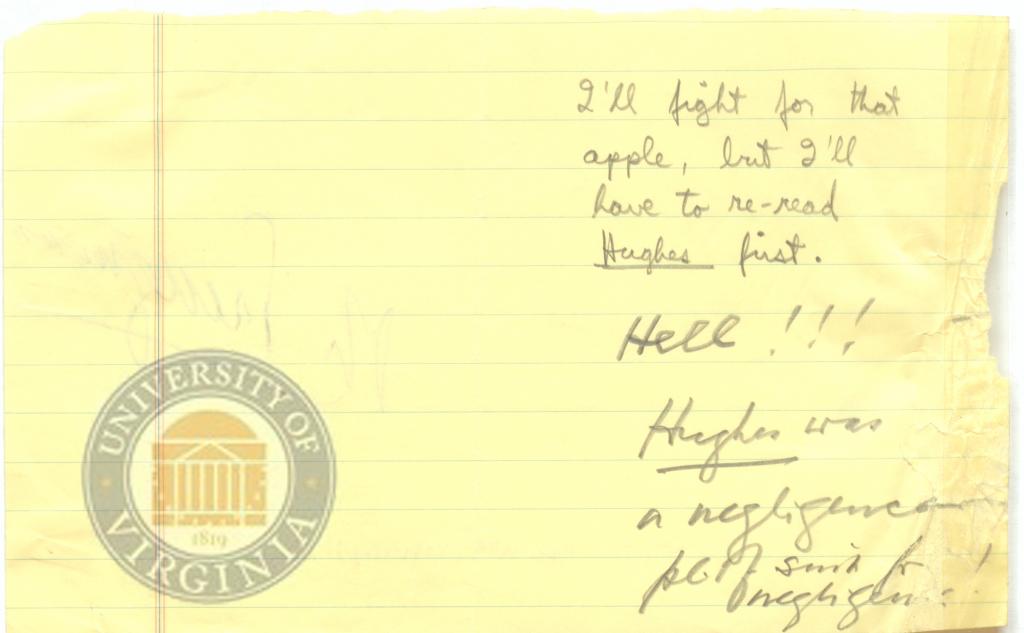 I'll fight for that
apple, but I'll
have to re-read
Hughes first.
Hell !!!
Hughes was
a negligence
suit for
negligence !
UNIVERSITY OF
VIRGINIA
1819